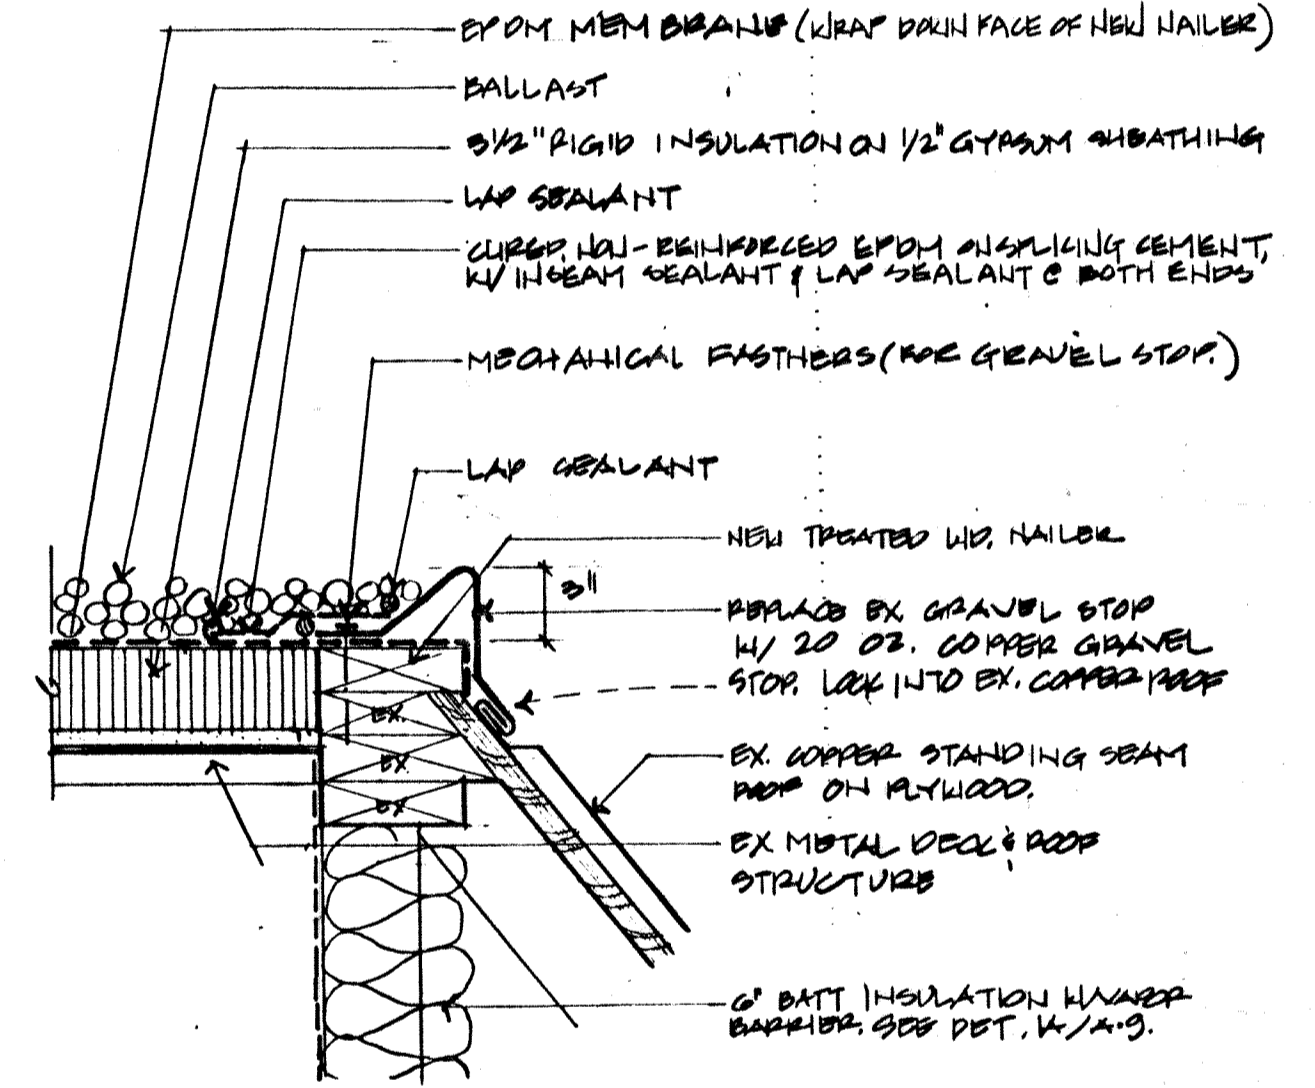 EPDM MEMBRANE (WRAP DOWN FACE OF NEW NAILER)
BALLAST
3 1/2" RIGID INSULATION ON 1/2" GYPSUM SHEATHING
LAP SEALANT
CURED, NON-REINFORCED EPDM ON SPLICING CEMENT,
W/ INSEAM SEALANT & LAP SEALANT @ BOTH ENDS
MECHANICAL FASTNERS (FOR GRAVEL STOP.)
LAP SEALANT
NEW TREATED WD. NAILER
3"
REPLACE EX. GRAVEL STOP
W/ 20 OZ. COPPER GRAVEL
STOP. LOCK INTO EX. COPPER ROOF
EX.
EX
EX
EX. COPPER STANDING SEAM
ROOF ON PLYWOOD.
EX METAL DECK & ROOF
STRUCTURE
6" BATT INSULATION W/VAPOR
BARRIER. SEE DET. /A-9.